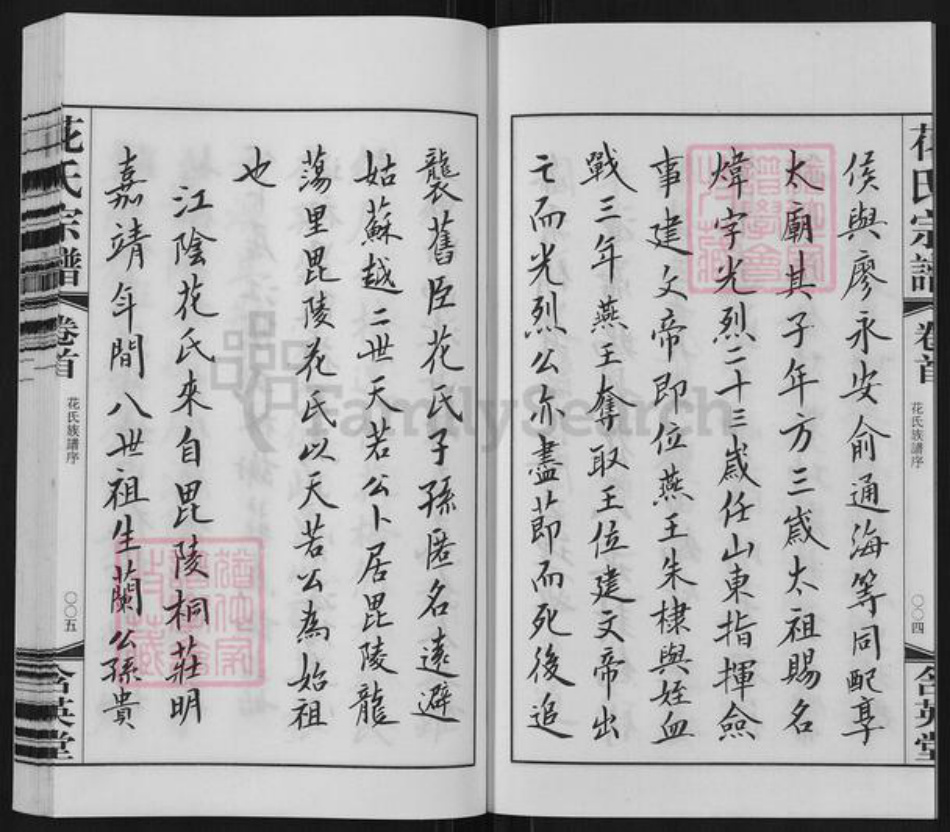 花氏宗譜
卷首
花氏族譜序
〇〇四
含英堂
侯與廖永安俞通海等同配享
太廟其子年方三歲太祖賜名
煒字光烈二十三歲任山東指揮僉
事建文帝即位燕王朱棣與姪血
戰三年燕王奪取王位建文帝出
亡而光烈公亦盡节而死後追
襲舊臣花氏子孫匿名遠避
姑蘇越二世天若公卜居毘陵龍
蕩里毘陵花氏以天若公為始祖
也
江陰花氏來自毘陵桐莊明
嘉靖年間八世祖生蘭公孫貴
花氏宗譜
卷首
花氏族譜序
〇〇五
含英堂
FamilySearch